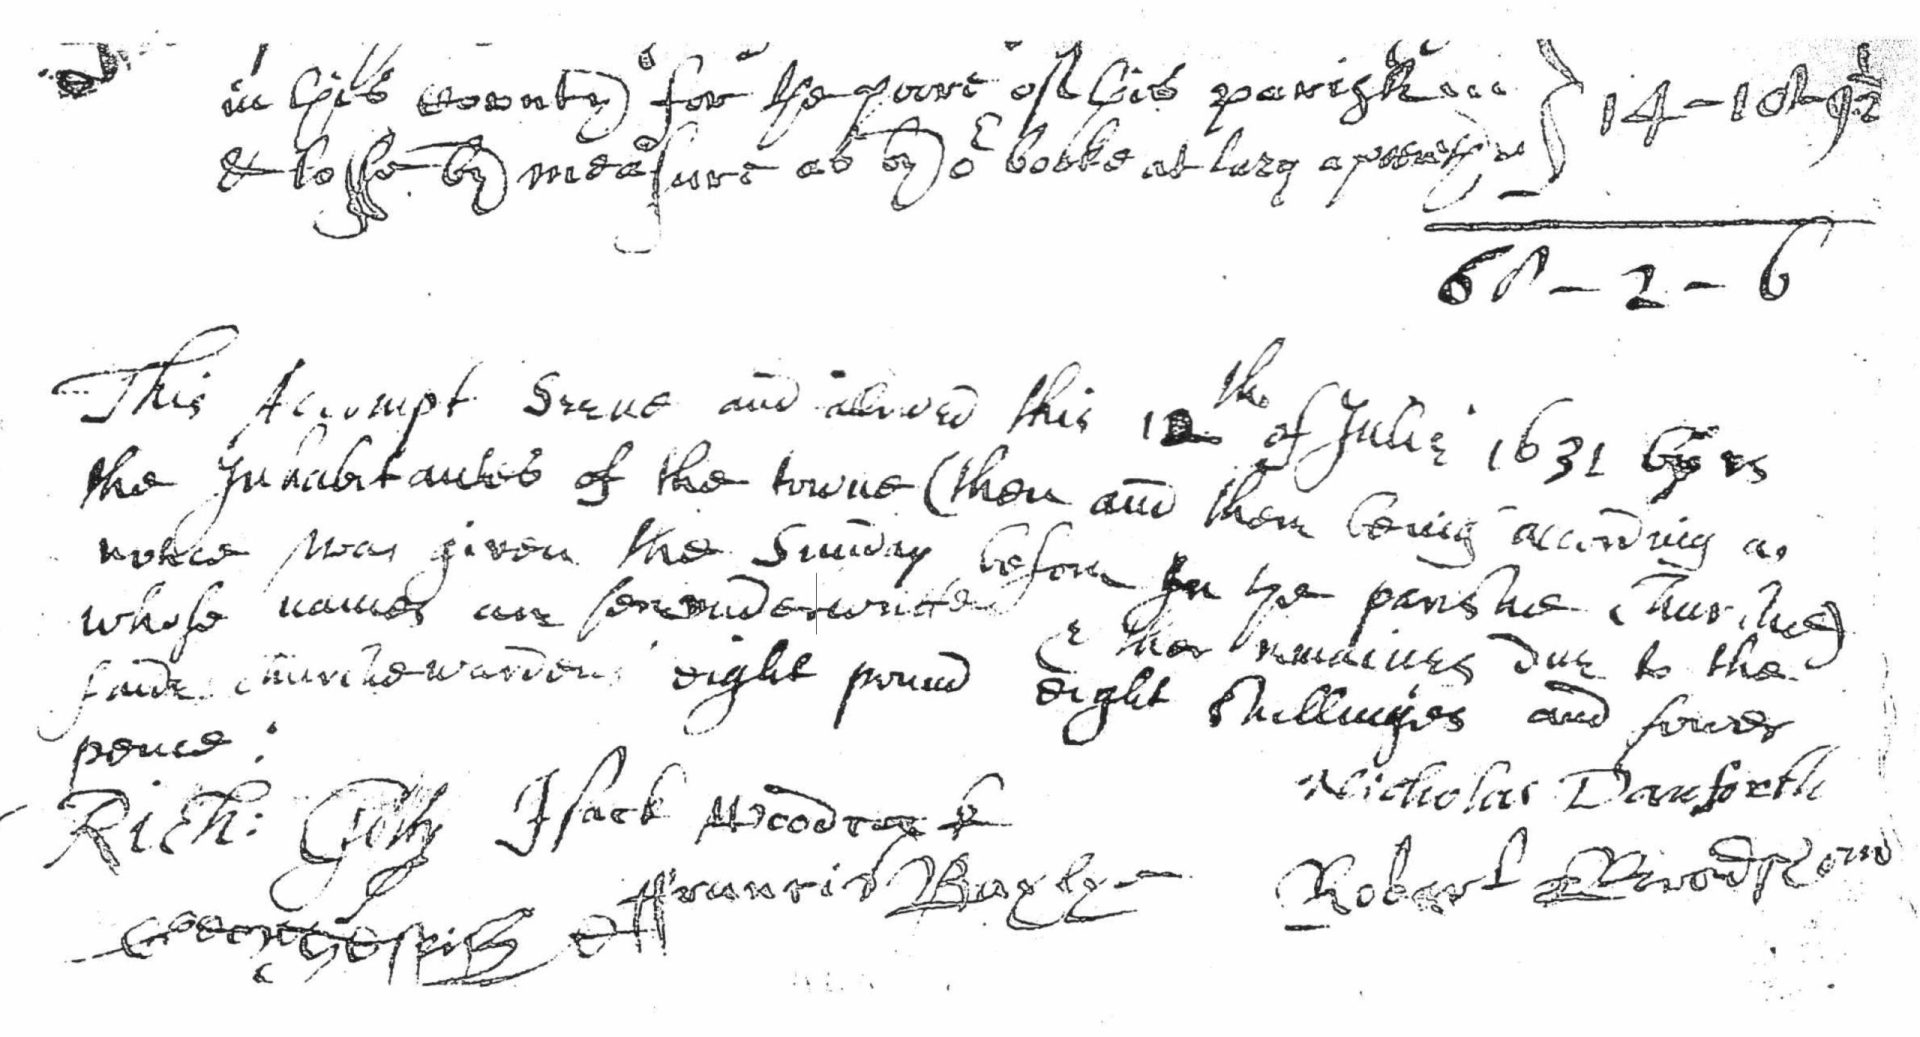 in this County for the poore of this parish
& losse by measure as by ye booke at larg 14 – 10 – 9½
– 2 – 6
This Accompt Seene and alowed this 12th of Julie 1631 by us
the Inhabitantes of the towne (then and there being according as
notice was given the Sunday before In the parishe Churche)
whose names are hereunderwritten & ther remaines due to the
saide Churchewardens eight pound eight shillinges and fower
pence:
Rich: Isack Nicholas Danforth
Francis Bayly Robert